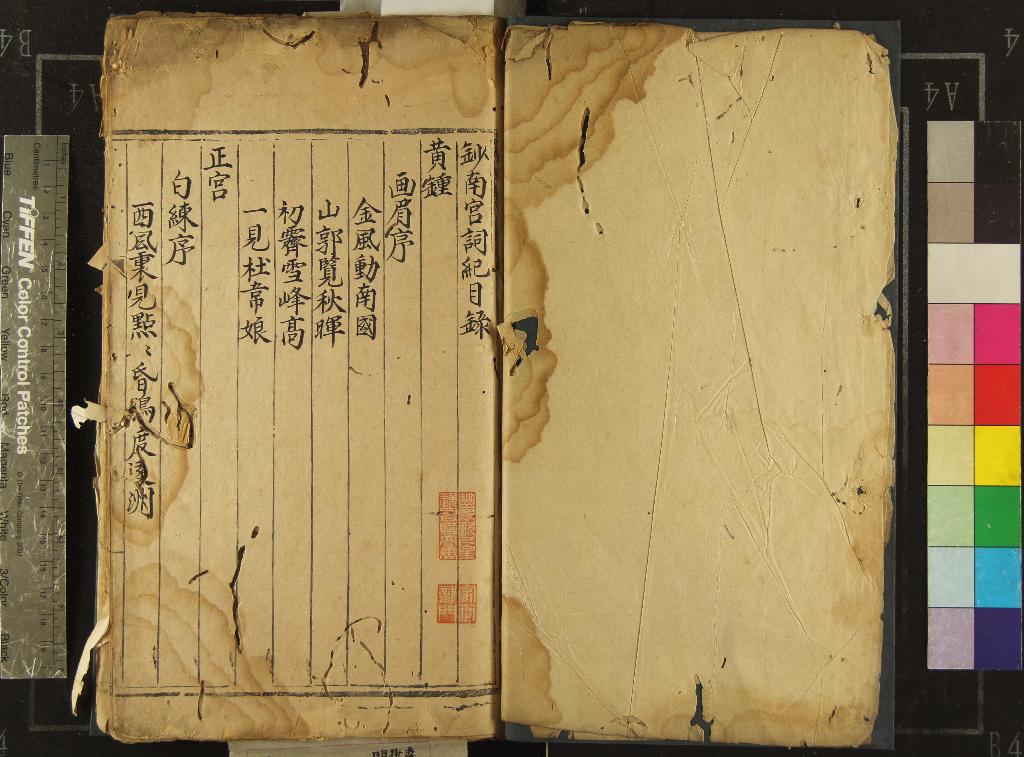 鈔南宮詞紀目錄
黃鍾
画眉序
金風動南國
山郭覽秋暉
初霽雪峰高
一見杜韋娘
正宮
白練序
西風裏見點〻昏鴉度遠洲
A4
B4
A4
4
B4
TIFFEN Color Control Patches
Blue
Cyan
Green
Yellow
Red
Magenta
White
3/Color
Black
Centimetres
Inches